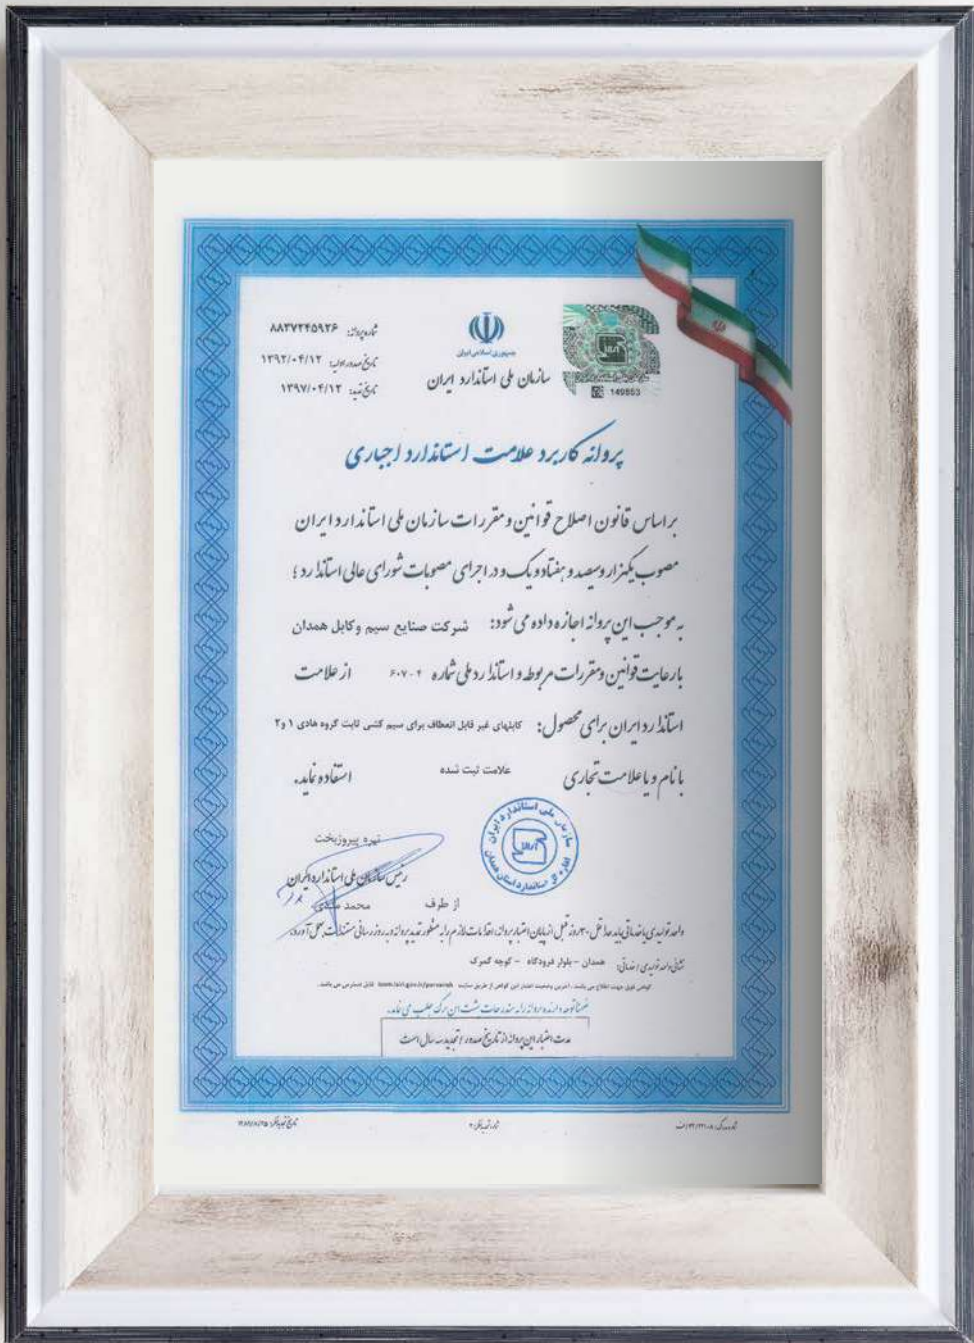 شماره پروانه: ۸۸۳۷۲۴۵۹۲۶
تاریخ صدور اولیه: ۱۳۹۲/۰۴/۱۲
تاریخ تمدید: ۱۳۹۷/۰۴/۱۲
جمهوری اسلامی ایران
سازمان ملی استاندارد ایران
149853
پروانه کاربرد علامت استاندارد اجباری
بر اساس قانون اصلاح قوانین و مقررات سازمان ملی استاندارد ایران
مصوب یکهزار و سیصد و هفتاد و یک و در اجرای مصوبات شورای عالی استاندارد؛
به موجب این پروانه اجازه داده می شود: شرکت صنایع سیم وکابل همدان
با رعایت قوانین و مقررات مربوطه و استاندارد ملی شماره ۶۰۷-۳ از علامت
استاندارد ایران برای محصول: کابلهای غیر قابل انعطاف برای سیم کشی ثابت گروه هادی ۱ و۲
با نام و یا علامت تجاری علامت ثبت شده استفاده نماید.
سازمان ملی استاندارد ایران
اداره کل استاندارد استان همدان
نیره پیروزبخت
رئیس سازمان ملی استاندارد ایران
از طرف محمد مددی
واحد تولیدی یا خدماتی باید حداقل ۳۰ روز قبل از پایان اعتبار پروانه، اقدامات لازم را به منظور تمدید پروانه و به روز رسانی مستندات بعمل آورد.
نشانی واحد تولیدی / خدماتی: همدان - بلوار فرودگاه - کوچه گمرک
گواهی فوق جهت اطلاع می باشد. آخرین وضعیت اعتبار این گواهی از طریق سایت قابل دسترس می باشد.
ضمناً توجه دارنده پروانه را به مندرجات پشت این برگ جلب می نماید.
مدت اعتبار این پروانه از تاریخ صدور / تجدید سه سال است